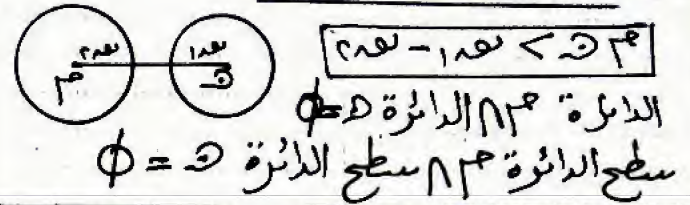 نق١ نق٢
ن م
م ن > نق١ - نق٢
الدائرة م ∩ الدائرة ن = ϕ
سطح الدائرة م ∩ سطح الدائرة ن = ϕ